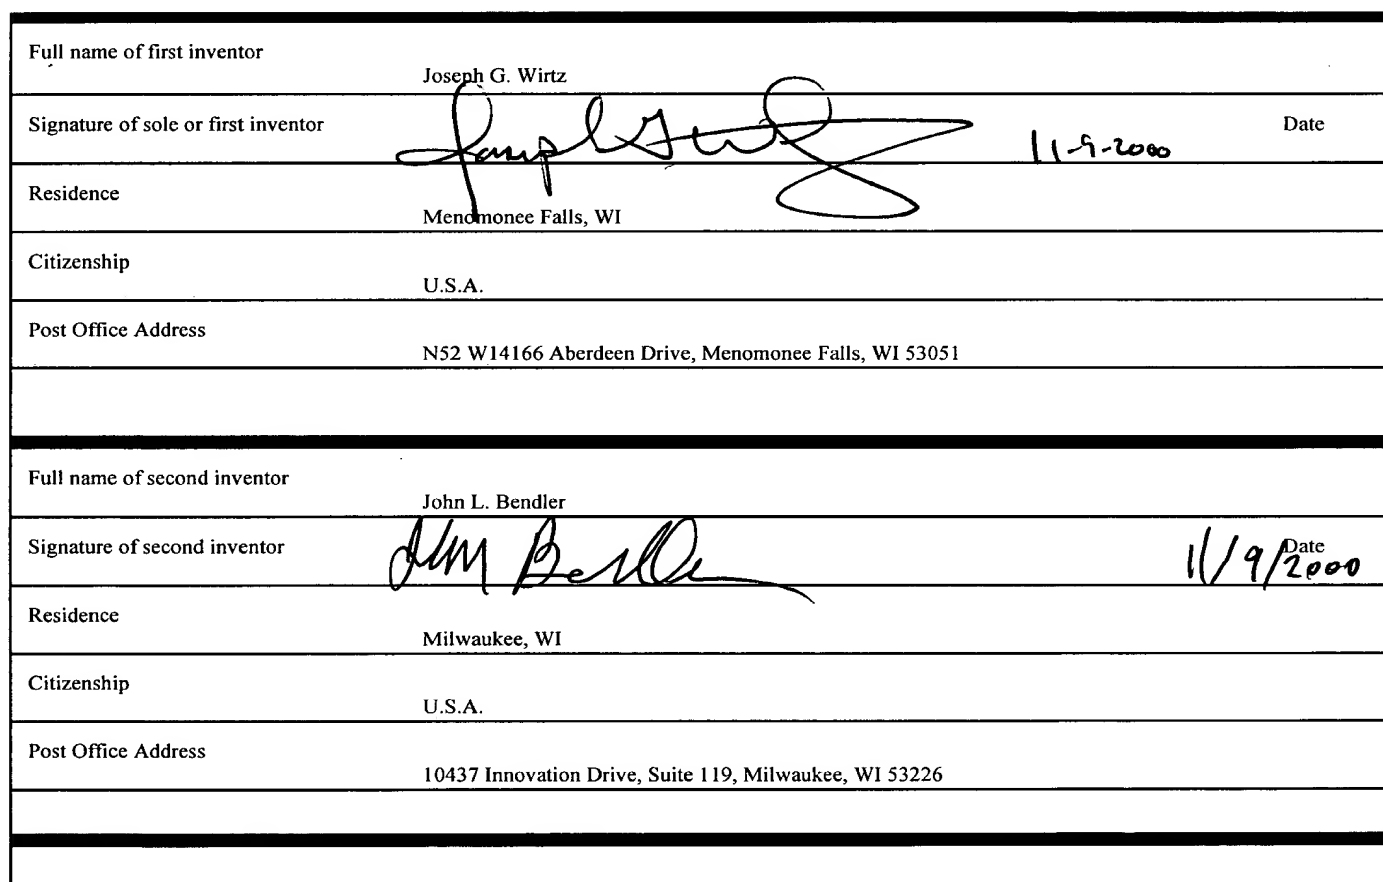 Full name of first inventor
Joseph G. Wirtz
Signature of sole or first inventor
Joseph G Wirtz
11-9-2000
Date
Residence
Menomonee Falls, WI
Citizenship
U.S.A.
Post Office Address
N52 W14166 Aberdeen Drive, Menomonee Falls, WI 53051
Full name of second inventor
John L. Bendler
Signature of second inventor
John Bendler
Date
11/9/2000
Residence
Milwaukee, WI
Citizenship
U.S.A.
Post Office Address
10437 Innovation Drive, Suite 119, Milwaukee, WI 53226